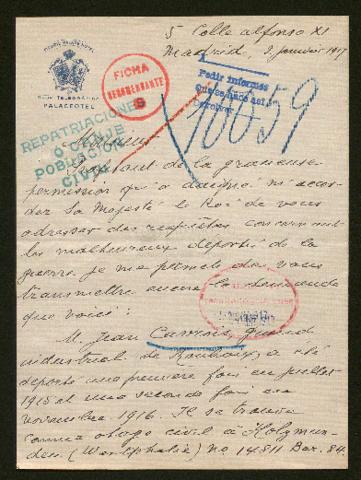 5 Calle Alfonso XI
Madrid, 3. Janvier 1917
PALACEOTEL
FICHA
REPATRIACIONES
O CANJE
POBLACION
CIVIL
Pedir informes
10059
Monsieur
Profitant de la gracieuse
permission qu'a daigné m'accor-
der Sa Majesté le Roi de vous
adresser des requêtes concernant
les malheureux déportés de la
guerre, je me permets de vous
transmettre encore la demande
que voici:
M. Jean grand
industriel de Roubaix, a été
déporté une première fois en juillet
1915 et une seconde fois en
novembre 1916. Il se trouve
comme otage civil à Holzmun-
den (Westphalie) no 14811 Bar. 84.